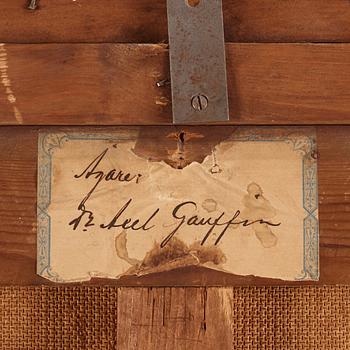 Ägare:
Dr Axel Gauffin